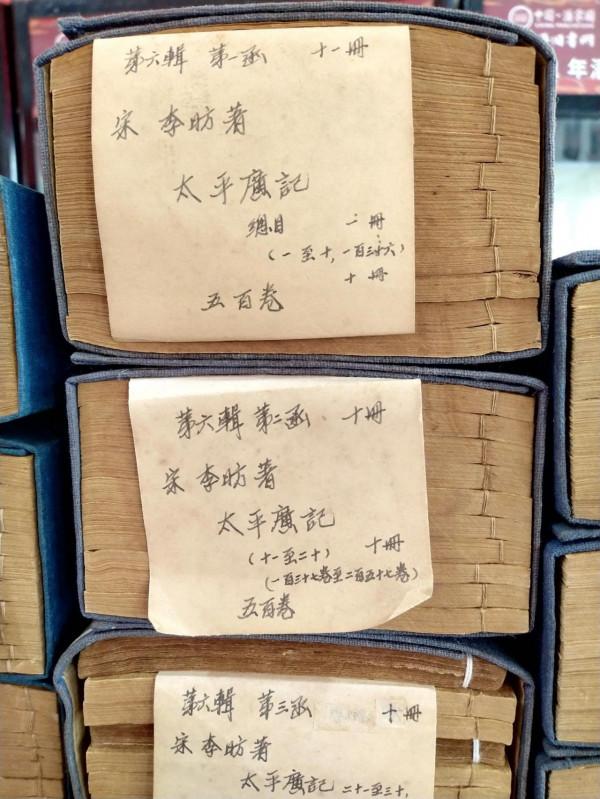 第六輯 第一函 十一冊
宋 李昉著
太平廣記
總目 一冊
(一至十, 一百三十六)
十冊
五百卷
第六輯 第二函 十冊
宋 李昉著
太平廣記
(十一至二十) 十冊
(一百三十七卷至二百五十七卷)
五百卷
第六輯 第三函 十冊
宋 李昉著
太平廣記 二十一至三十,
中国
年